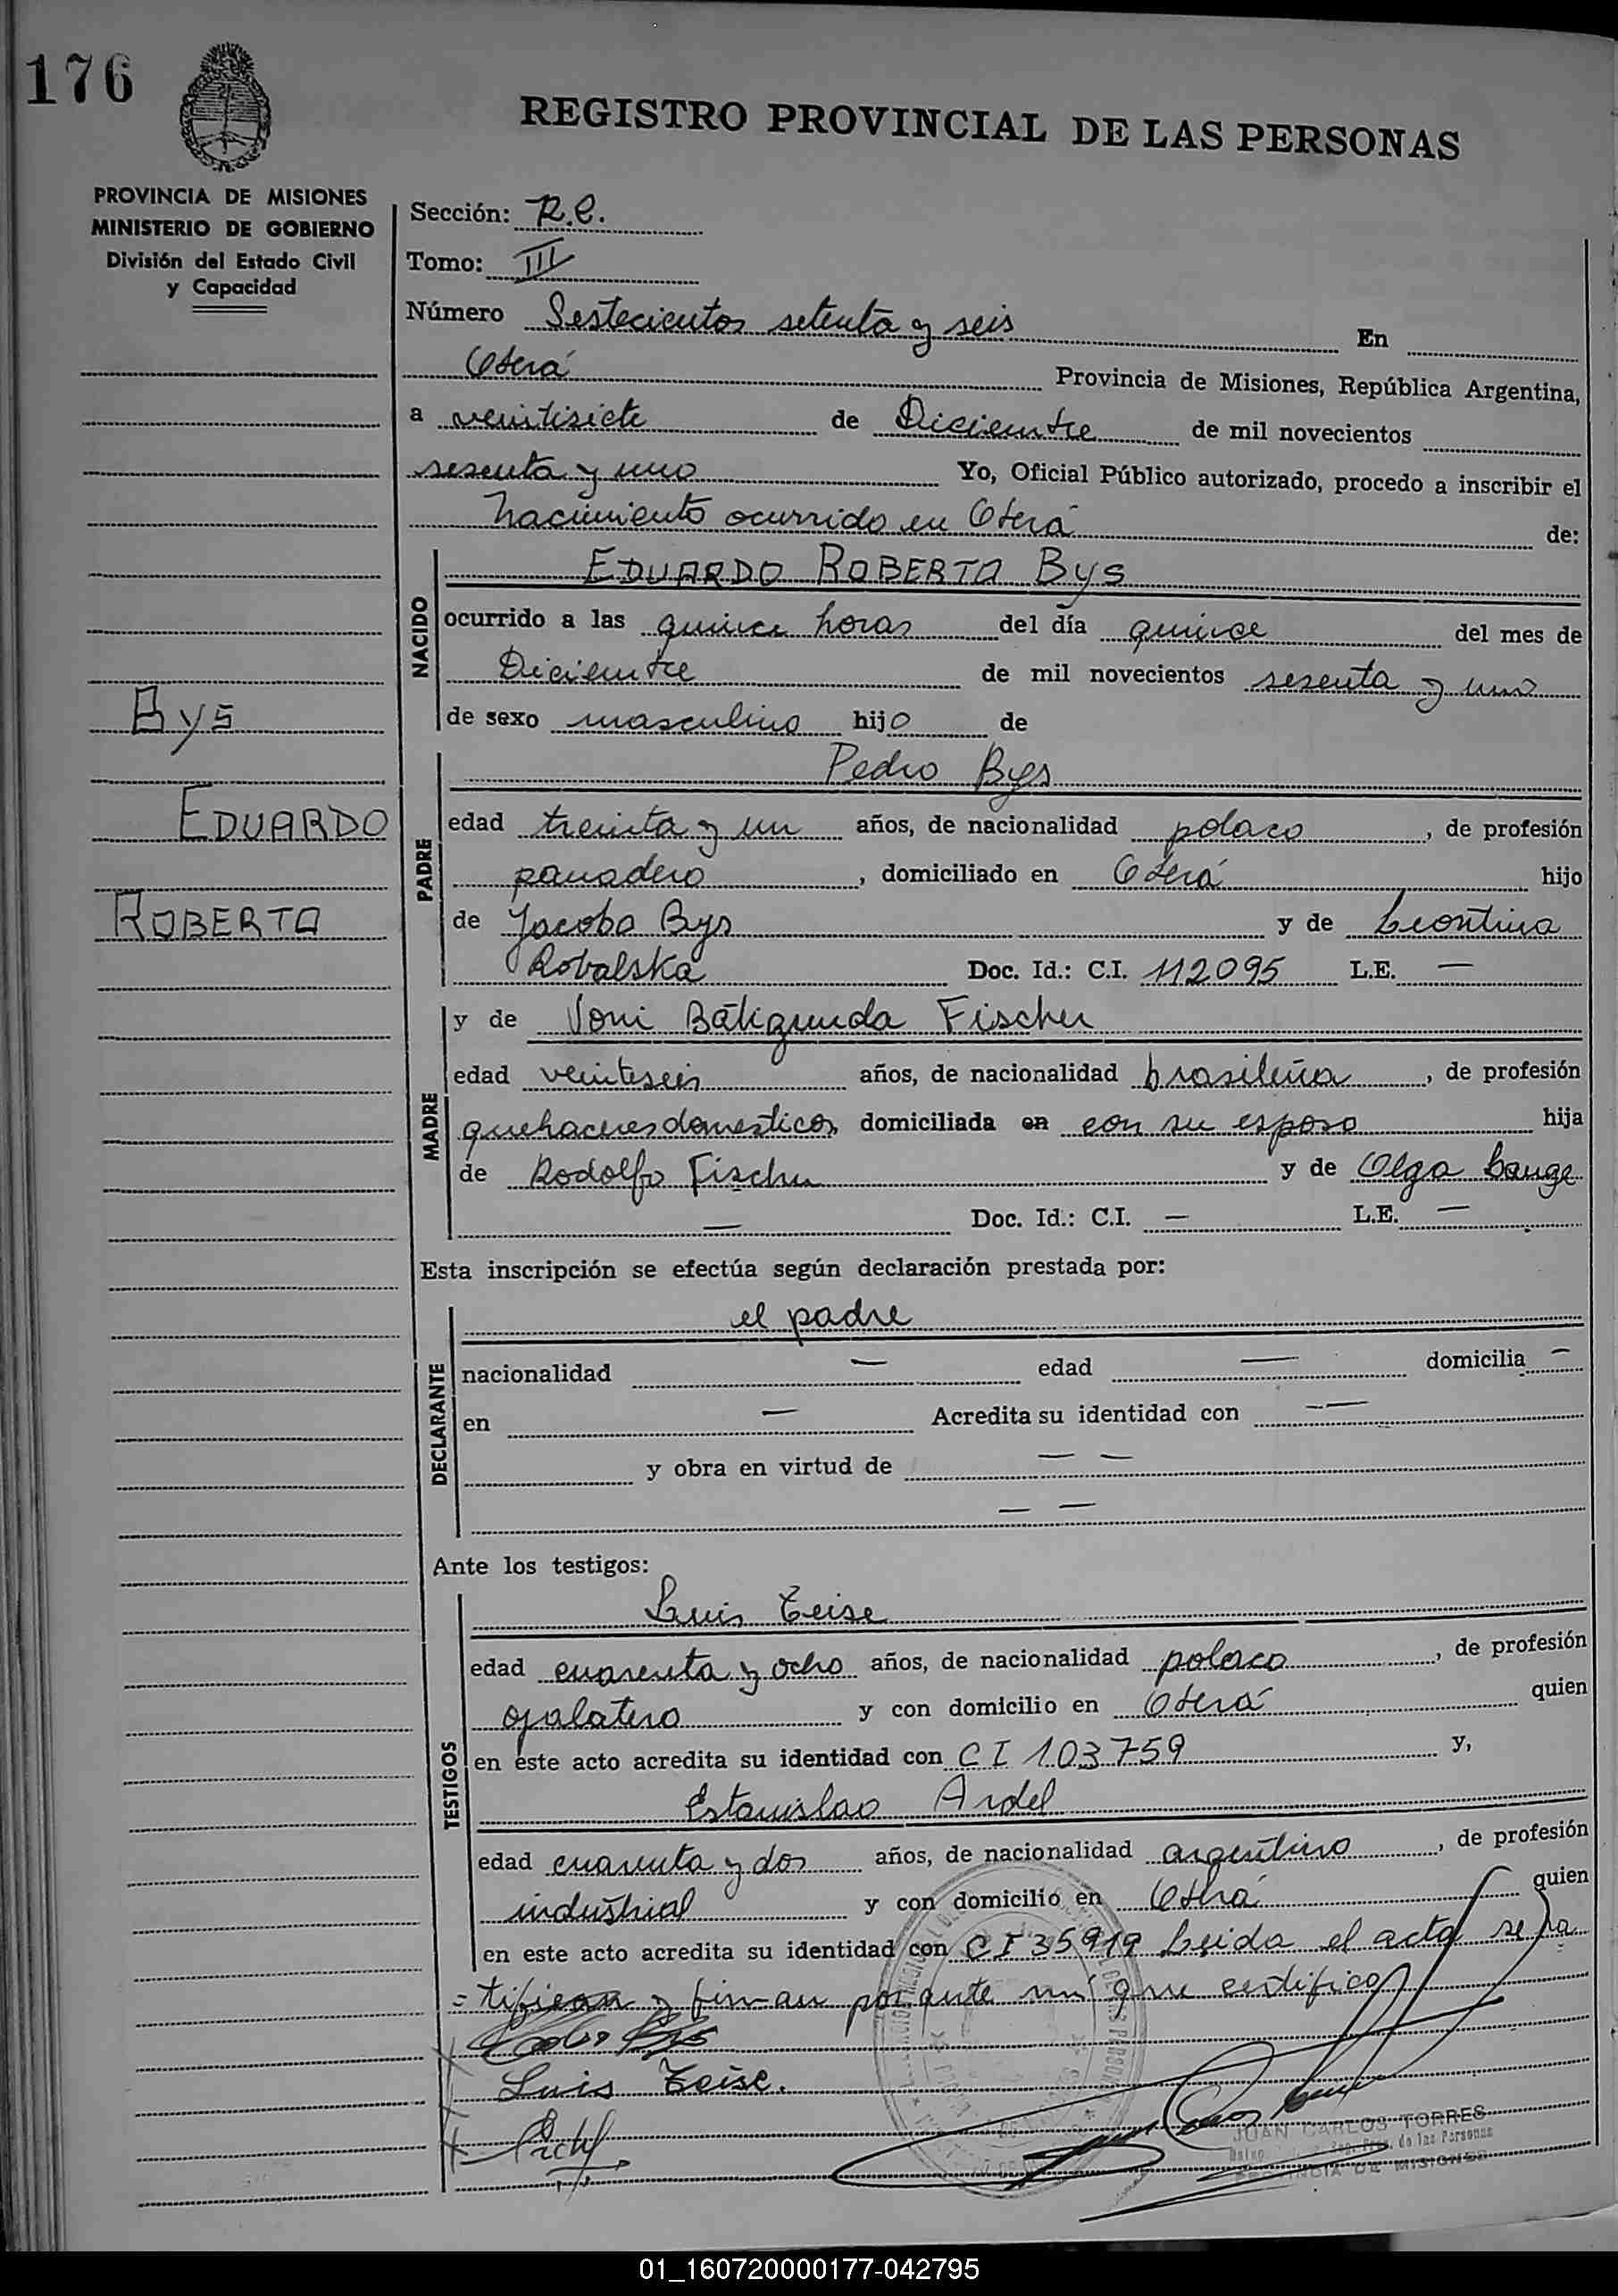 176
REGISTRO PROVINCIAL DE LAS PERSONAS
PROVINCIA DE MISIONES
MINISTERIO DE GOBIERNO
División del Estado Civil
y Capacidad
Sección: R.C.
Tomo: III
Número Sestecientos setenta y seis En
Oberá Provincia de Misiones, República Argentina,
a veintisiete de Diciembre de mil novecientos
sesenta y uno Yo, Oficial Público autorizado, procedo a inscribir el
nacimiento ocurrido en Oberá de:
NACIDO
EDUARDO ROBERTO BYS
ocurrido a las quince horas del día quince del mes de
Diciembre de mil novecientos sesenta y uno
de sexo masculino hijo de
Bys
EDUARDO
ROBERTO
PADRE
Pedro Bys
edad treinta y un años, de nacionalidad polaco, de profesión
panadero, domiciliado en Oberá hijo
de Jacobo Bys y de Leontina
Robalska Doc. Id.: C.I. 112095 L.E. —
MADRE
y de Fischer
edad veinteseis años, de nacionalidad brasileña, de profesión
quehaceres domesticos domiciliada en con su esposo hija
de Rodolfo Fischer y de Olga Lange
— Doc. Id.: C.I. — L.E. —
Esta inscripción se efectúa según declaración prestada por:
DECLARANTE
el padre
nacionalidad — edad — domicilia —
en — Acredita su identidad con — —
y obra en virtud de — —
— —
Ante los testigos:
TESTIGOS
Luis Zeise
edad cuarenta y ocho años, de nacionalidad polaco, de profesión
ojalatero y con domicilio en Oberá quien
en este acto acredita su identidad con CI 103759 y,
Estanislao Ardel
edad cuarenta y dos años, de nacionalidad argentino, de profesión
industrial y con domicilio en Oberá quien
en este acto acredita su identidad con CI 35919 Leida el acta se ra
=tifican y firman por ante mí que certifico
Luis Zeise.
JUAN CARLOS TORRES
de las Personas
PROVINCIA DE MISIONES
01_160720000177-042795